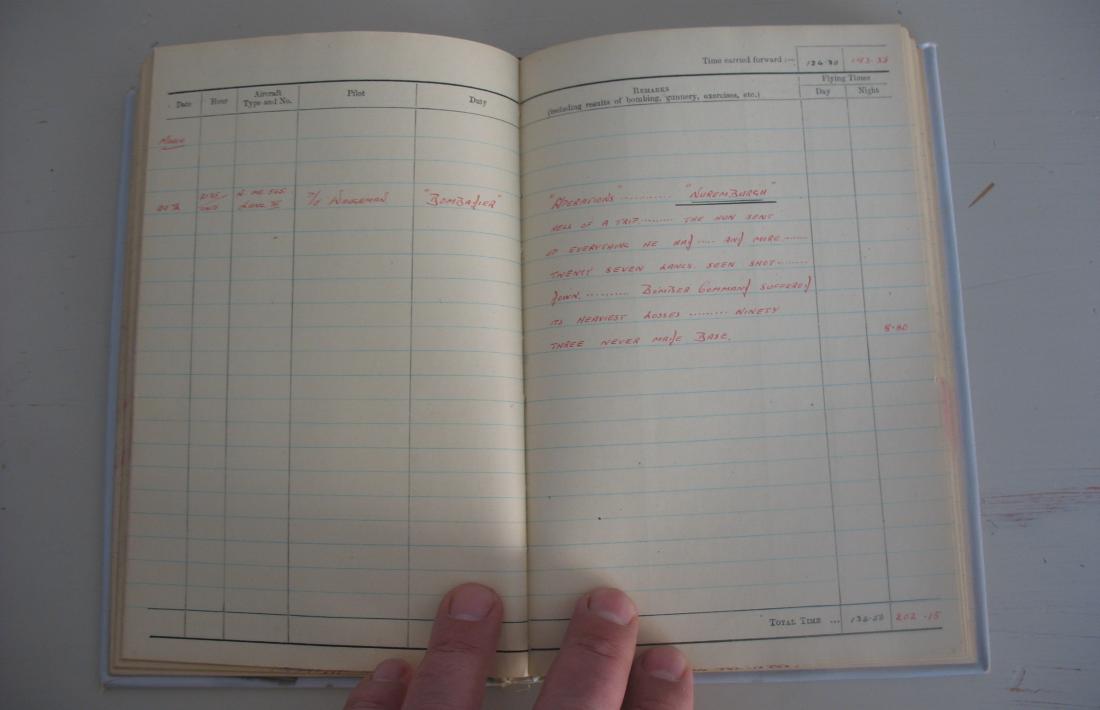 Time carried forward :— 134·30 193·35
Date Hour Aircraft Type and No. Pilot Duty
REMARKS
(including results of bombing, gunnery, exercises, etc.)
Flying Times
Day Night
MARCH
LANC III WAGGEMAN "BOMBADIER"
"OPERATIONS" .......... "NUREMBURGH"
HELL OF A TRIP ........ THE HUN SENT
UP EVERYTHING HE HAD ..... AND MORE ......
TWENTY SEVEN LANCS SEEN SHOT.......
DOWN. .......... BOMBER COMMAND SUFFERED
ITS HEAVIEST LOSSES ......... NINETY
THREE NEVER MADE BASE.
TOTAL TIME ... 202·15